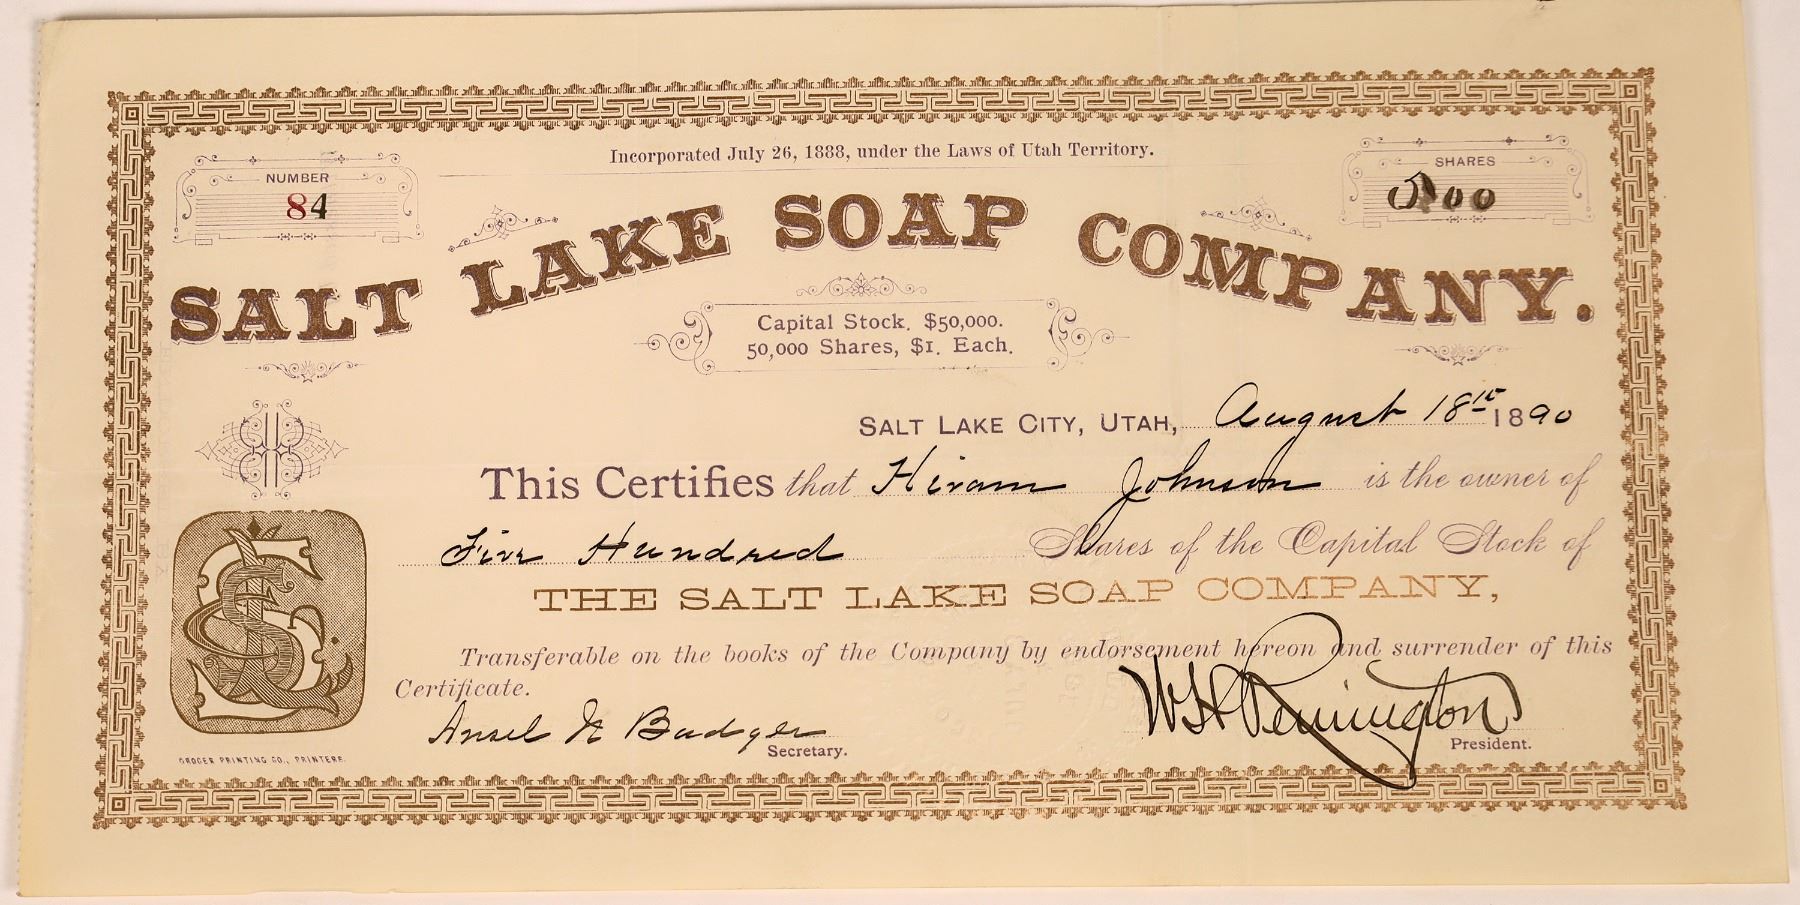 Incorporated July 26, 1888, under the Laws of Utah Territory.
NUMBER
84
SHARES
500
SALT LAKE SOAP COMPANY.
Capital Stock, $50,000.
50,000 Shares, $1. Each.
SALT LAKE CITY, UTAH, August 18th 1890
This Certifies that Hiram Johnson is the owner of
Five Hundred Shares of the Capital Stock of
THE SALT LAKE SOAP COMPANY,
Transferable on the books of the Company by endorsement hereon and surrender of this
Certificate.
Ansel N Badger
Secretary.
W H Pennington
President.
GROCER PRINTING CO., PRINTERS.